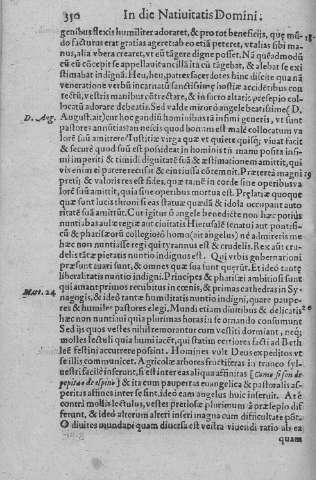 350 In die Natiuitatis Domini.
genibus flexis humiliter adoraret, & pro tot beneficijs, quę mũ-
do facturus erat gratias ageret ab eo etiã peteret, vt alias sibi ma-
nus, alia vbera crearet, vt eũ tãgere digne posset. Nã quẽadmodũ
cũ eũ cõcepisse appellauit ancillã ita cũ tãgebat, & alebat se exi
stimabat indignã. Heu, heu, patres sacerdotes hinc discite qua nã
veneratione verbũ incarnatũ sanctissimę hostiæ accidẽtibus con-
tectũ, vestris manibus cõtrectare, & in sacro altari; pręsepio collo-
catũ adorare debeatis. Sed valde miror ò angele beatissime (D.
D. Aug. August. ait) cur hoc gaudiũ hominibus tã infimi generis, vt sunt
pastores annũtias tan nescis quod bonum est malè collocatum va
lorẽ suũ amittere? Iustitiæ virga quæ vt quiete quisq; viuat facit
& securè quod suũ est possideat in hominis tñ manu posita infi-
mi imperiti & timidi dignitatẽ suã & æstimationem amittit, qui
vis enim ei parere recusat & eius iussa cõtemnit. Prætereà magni 19
pretij & valoris res est fides, quæ tamẽ in corde sine operibus va
lorẽ suũ amittit, quia sine operibus mortua est. Prælatiæ quoque
quæ sunt lucis throni si eas statuæ quædã & idola occupant auto
ritatẽ suã amittũt. Cur igitur ô angele benedicte non hæc potius
nuntiabas aulæ regiæ aut ciuitatis Hierusalẽ senatui aut pontifi-
cũ & pharisæorũ collegio? ô homo (ait angelus) nè admireris me
hæc non nuntiasse regi qui tyrannus est & crudelis. Rex aũt cru-
delis tãtæ pietatis nuntio indignus est. Qui vrbis gubernationi
præsunt auari sunt, & omnes quæ sua sunt quęrũt. Et ideò tantę
liberalitatis nuntio indigni. Principes & pharisæi ambitiosi sunt
qui amant primos recubitus in cœnis, & primas cathedras in Sy-
Mat. 24. nagogis, & ideò tantæ humilitatis nuntio indigni, quare paupe-
res & humiles pastores elegi. Mundi etiam diuitibus & delicatis 20
hæc non nuntiaui quia plurimas horas in se ornando consumunt
Sed ijs quos vestes nihil remorantur cum vestiti dormiant, neq;
molles lectuli quia humi iacẽt, qui statim certiores facti ad Beth
leẽ festini accurrere possint. Homines vule Deus expeditos vt
se illis communicet. Agricolæ arbores fructiferas in trunco syl-
uestri facilè inserunt, si est inter eas aliqua affinitas [Como si son de
pepita ò de espino] & ita cum paupertas euangelica & pastoralis as-
peritas affines inter se sint, ideò eam angelus huic inseruit. At è
contra mollis lectulus, vestes pretiosæ plurimum à præsepio dif
ferunt, & ideò alterum alteri inseri magna cum difficultate põt.
O diuites mundani quam diuersa est vestra viuendi ratio ab ea
quam